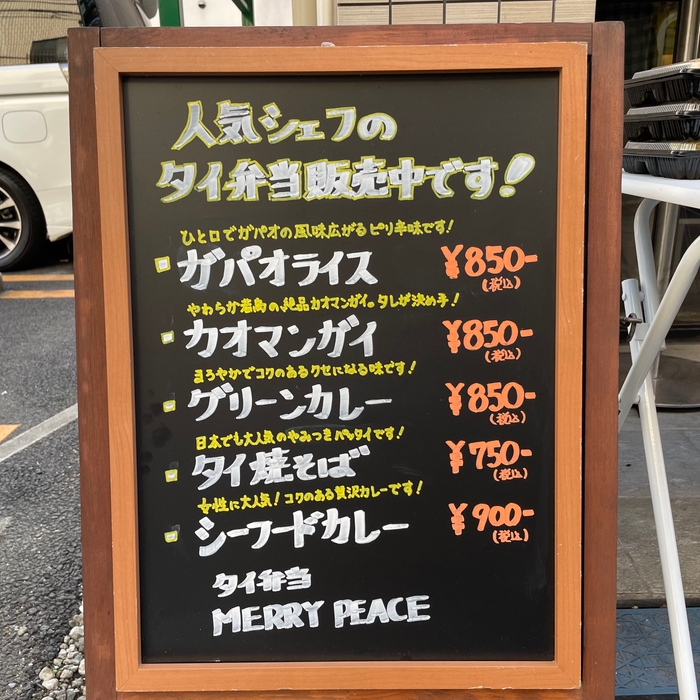 人気シェフの
タイ弁当販売中です!
ひと口でガパオの風味広がるピリ辛味です!
ガパオライス ¥850-
(税込)
やわらか蒸鳥の絶品カオマンガイ。タレが決め手!
カオマンガイ ¥850-
(税込)
まろやかでコクのあるクセになる味です!
グリーンカレー ¥850-
(税込)
日本でも大人気のやみつきパッタイです!
タイ焼そば ¥750-
(税込)
女性に大人気!コクのある贅沢カレーです!
シーフードカレー ¥900-
(税込)
タイ弁当
MERRY PEACE